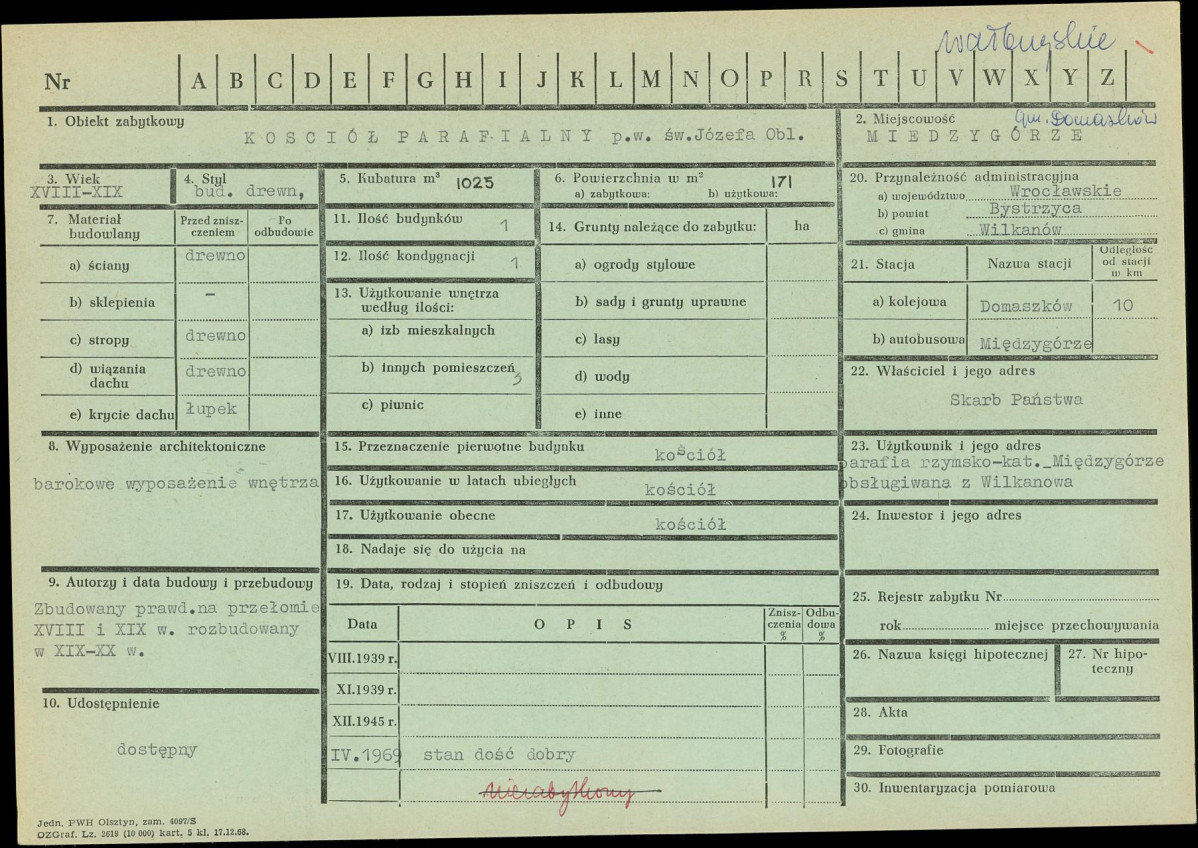 wałbrzyskie
Nr A B C D E F G H I J K L M N O P R S T U V W X Y Z
1. Obiekt zabytkowy
KOSCIÓŁ PARAFIALNY p.w. św.Józefa Obl.
2. Miejscowość gm. Domaszków
MIEDZYGÓRZE
3. Wiek
XVIII-XIX
4. Styl
bud. drewn,
5. Kubatura m³ 1025
6. Powierzchnia w m²
a) zabytkowa: b) użytkowa: 171
7. Materiał budowlany
Przed znisz-
czeniem
Po
odbudowie
a) ściany drewno
b) sklepienia –
c) stropy drewno
d) wiązania
dachu drewno
e) krycie dachu łupek
11. Ilość budynków 1
12. Ilość kondygnacji 1
13. Użytkowanie wnętrza
według ilości:
a) izb mieszkalnych
b) innych pomieszczeń 3
c) piwnic
14. Grunty należące do zabytku: ha
a) ogrody stylowe
b) sady i grunty uprawne
c) lasy
d) wody
e) inne
20. Przynależność administracyjna
a) województwo Wrocławskie
b) powiat Bystrzyca
c) gmina Wilkanów
21. Stacja
Nazwa stacji
Odległość
od stacji
w km
a) kolejowa Domaszków 10
b) autobusowa Międzygórze
22. Właściciel i jego adres
Skarb Państwa
8. Wyposażenie architektoniczne
barokowe wyposażenie wnętrza
15. Przeznaczenie pierwotne budynku kościół
16. Użytkowanie w latach ubiegłych kościół
17. Użytkowanie obecne kościół
18. Nadaje się do użycia na
23. Użytkownik i jego adres
parafia rzymsko-kat._Międzygórze
obsługiwana z Wilkanowa
24. Inwestor i jego adres
9. Autorzy i data budowy i przebudowy
Zbudowany prawd.na przełomie
XVIII i XIX w. rozbudowany
w XIX-XX w.
10. Udostępnienie
dostępny
19. Data, rodzaj i stopień zniszczeń i odbudowy
Data
OPIS
Znisz-
czenia
%
Odbu-
dowa
%
VIII.1939 r.
XI.1939 r.
XII.1945 r.
IV.1969 stan dość dobry
niezabytkowy
25. Rejestr zabytku Nr
rok miejsce przechowywania
26. Nazwa księgi hipotecznej
27. Nr hipo-
teczny
28. Akta
29. Fotografie
30. Inwentaryzacja pomiarowa
Jedn. PWH Olsztyn, zam. 4097/S
OZGraf. Lz. 2619 (10 000) kart. 5 kl. 17.12.68.